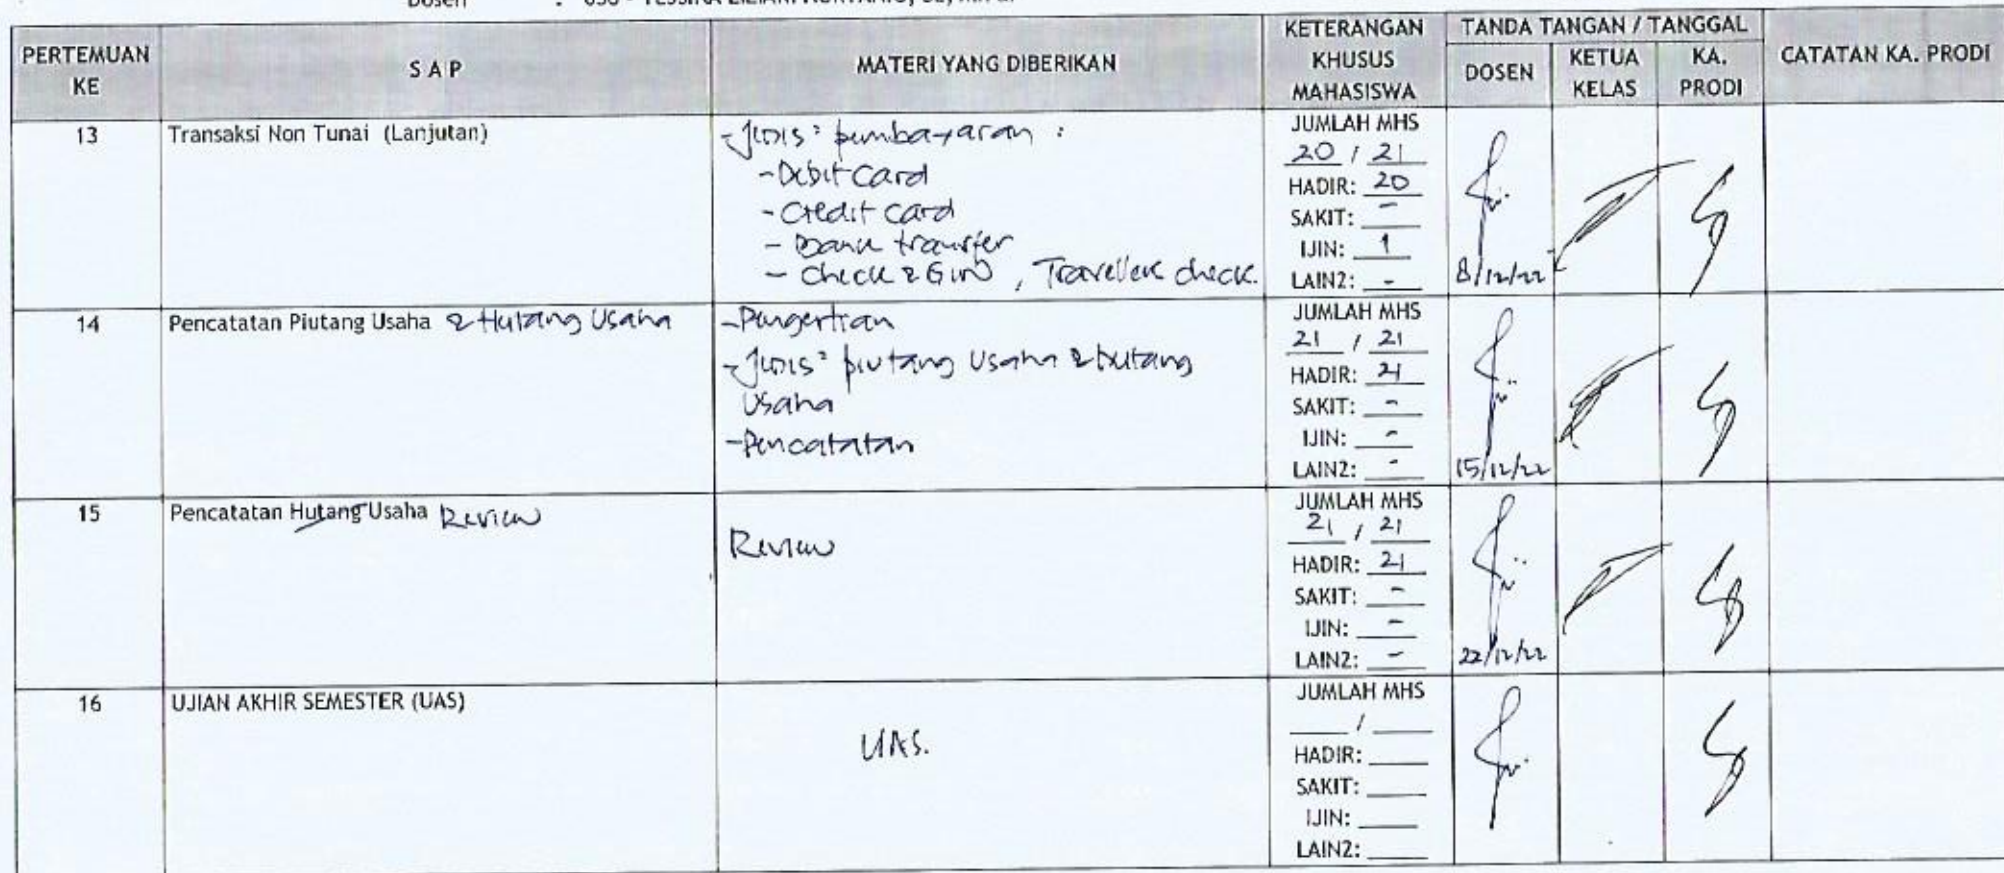 Dosen :
PERTEMUAN KE | S A P | MATERI YANG DIBERIKAN | KETERANGAN KHUSUS MAHASISWA | TANDA TANGAN / TANGGAL | CATATAN KA. PRODI
DOSEN | KETUA KELAS | KA. PRODI
13 | Transaksi Non Tunai (Lanjutan)
- Jenis² pembayaran :
- Debit Card
- Credit card
- Bank transfer
- Check & Giro , Travellers check.
JUMLAH MHS
20 / 21
HADIR: 20
SAKIT: -
IJIN: 1
LAIN2: -
8/12/22
14 | Pencatatan Piutang Usaha & Hutang Usaha
- Pengertian
- Jenis² piutang Usaha & hutang
Usaha
- Pencatatan
JUMLAH MHS
21 / 21
HADIR: 21
SAKIT: -
IJIN: -
LAIN2: -
15/12/22
15 | Pencatatan Hutang Usaha Review
Review
JUMLAH MHS
21 / 21
HADIR: 21
SAKIT: -
IJIN: -
LAIN2: -
22/12/22
16 | UJIAN AKHIR SEMESTER (UAS)
UAS.
JUMLAH MHS
/
HADIR:
SAKIT:
IJIN:
LAIN2: